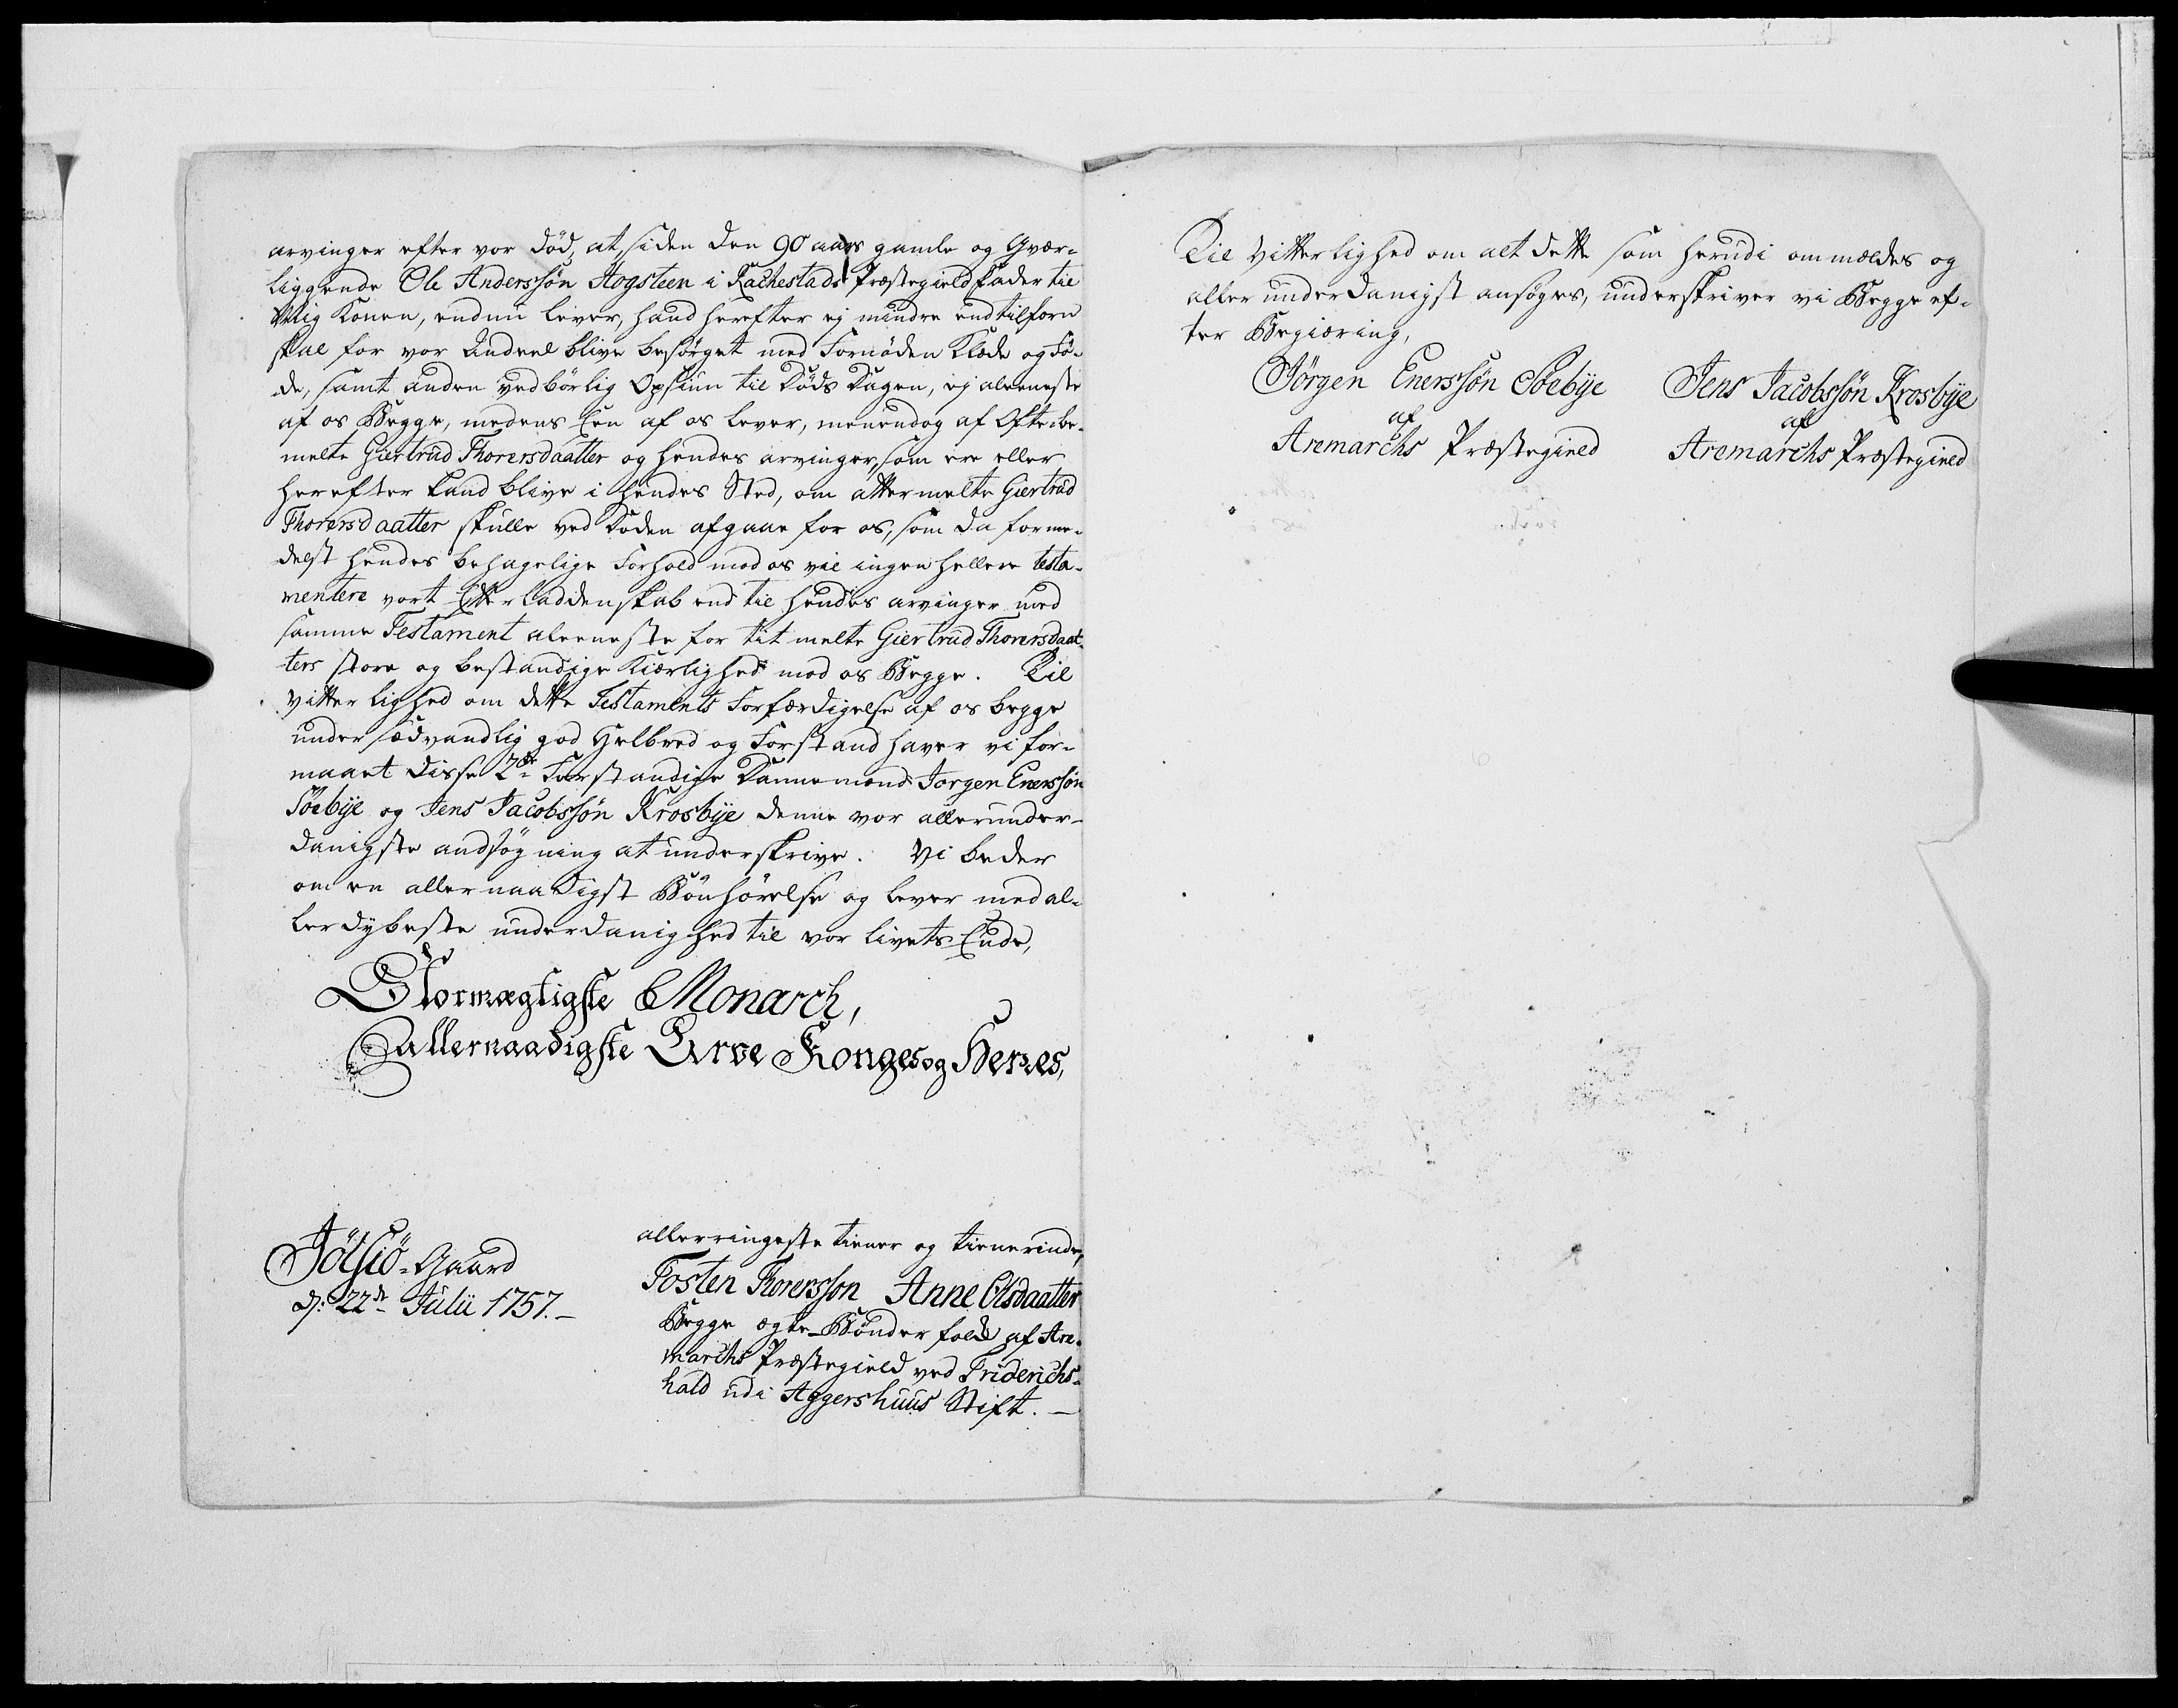 arvinger efter vor død, at siden den 90 aars gamle og Qvær-
liggende Ole Anderssøn Høgsteen i Rachestads Præstegield fader til
Mig Konen, endnu lever, hand herefter ej mindre end tilforn
skal for vor Andeel blive besørget med Fornøden Klæde og Fø-
de, samt anden vedbørlig Opsiun til Døds Dagen, ej aleeneste
af os Begge, medens Een af os lever, menendog af Oftbe-
melte Giertrud Thorersdaatter og hendes arvinger, som ere eller
herefter kand blive i hendes Sted, om attermelte Giertrud
Thorersdaatter skulle ved Døden afgaae for os, som da forme-
delst hendes behagelige Forhold mod os vil ingen hellere testa-
mentere vort Efterladdenskab end til hendes arvinger med
samme Testament aleeneste for titmelte Giertrud Thorersdaat-
ters store og bestandige Kiærlighed mod os Begge. Til
Vitterlighed om dette Testaments Forfærdigelse af os begge
under sædvandlig god Helbred og Forstand haver vi for-
maaet disse 2de Forstandige Dannemænd Jorgen Enerssøn
Söebÿe og Jens Jacobssøn Krosbÿe denne vor allerunder-
danigste andsøgning at underskrive. Vi beder
om en allernaadigst Bønhørelse og lever med al-
lerdybeste underdanighed til vor livets Ende,
Stormægtigste Monarch,
allernaadigste Arve Konges og Herres,
allerringeste tiener og tienerinde,
Jölsiö-Gaard
d: 22de Julii 1757.-
Tosten Thorersson Anne Olsdaatter
Begge ægte-Bønder folk af Are-
marchs Præstegield ved Friderichs-
hald udi Aggershuus Stift.-
Til Vitterlighed om alt dette som herudi ommældes og
allerunderdanigst ansøges, underskriver vi Begge ef-
ter Begiæring,
Jörgen Enerssøn Söebÿe Jens Jacobssøn Krosbÿe
af af
Aremarchs Præstegield Aremarchs Præstegield